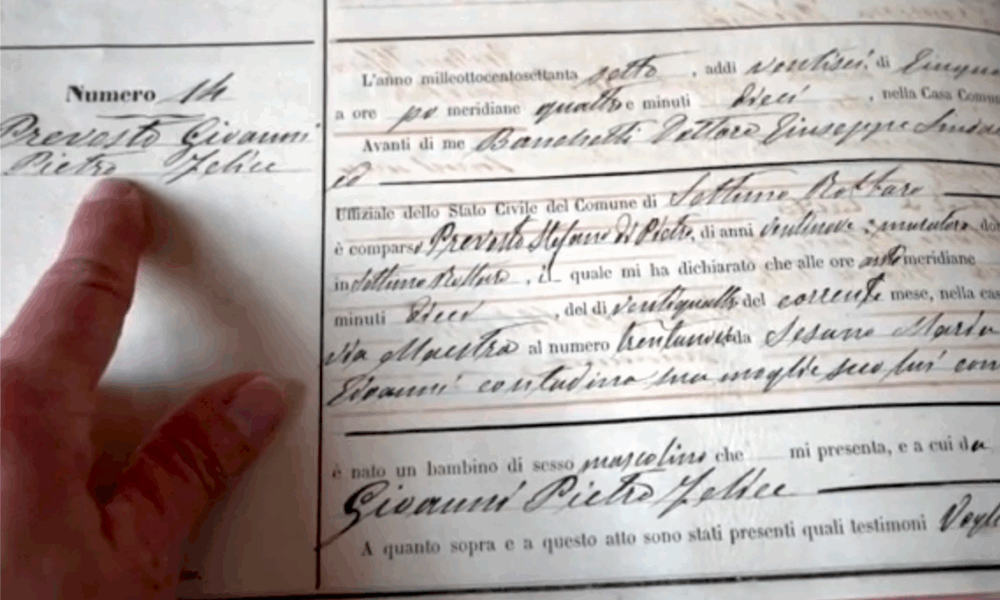 Numero 14
Prevosto Giovanni
Pietro Felice
L'anno milleottocentosettanta sette, addi ventisei di
a ore po meridiane quattro e minuti dieci, nella Casa Comu
Avanti di me Dottore Giuseppe
Uffiziale dello Stato Civile del Comune di Settimo Rottaro
è comparso Prevosto Stefano di Pietro, di anni ventinove, muratore, do
in Settimo Rottaro, il quale mi ha dichiarato che alle ore anti meridiane
minuti dieci, del di ventiquattro del corrente mese, nella cas
via Maestra al numero da Maria
Giovanni contadina sua moglie seco lui con
è nato un bambino di sesso mascolino che mi presenta, e a cui da
Giovanni Pietro Felice
A quanto sopra e a questo atto sono stati presenti quali testimoni